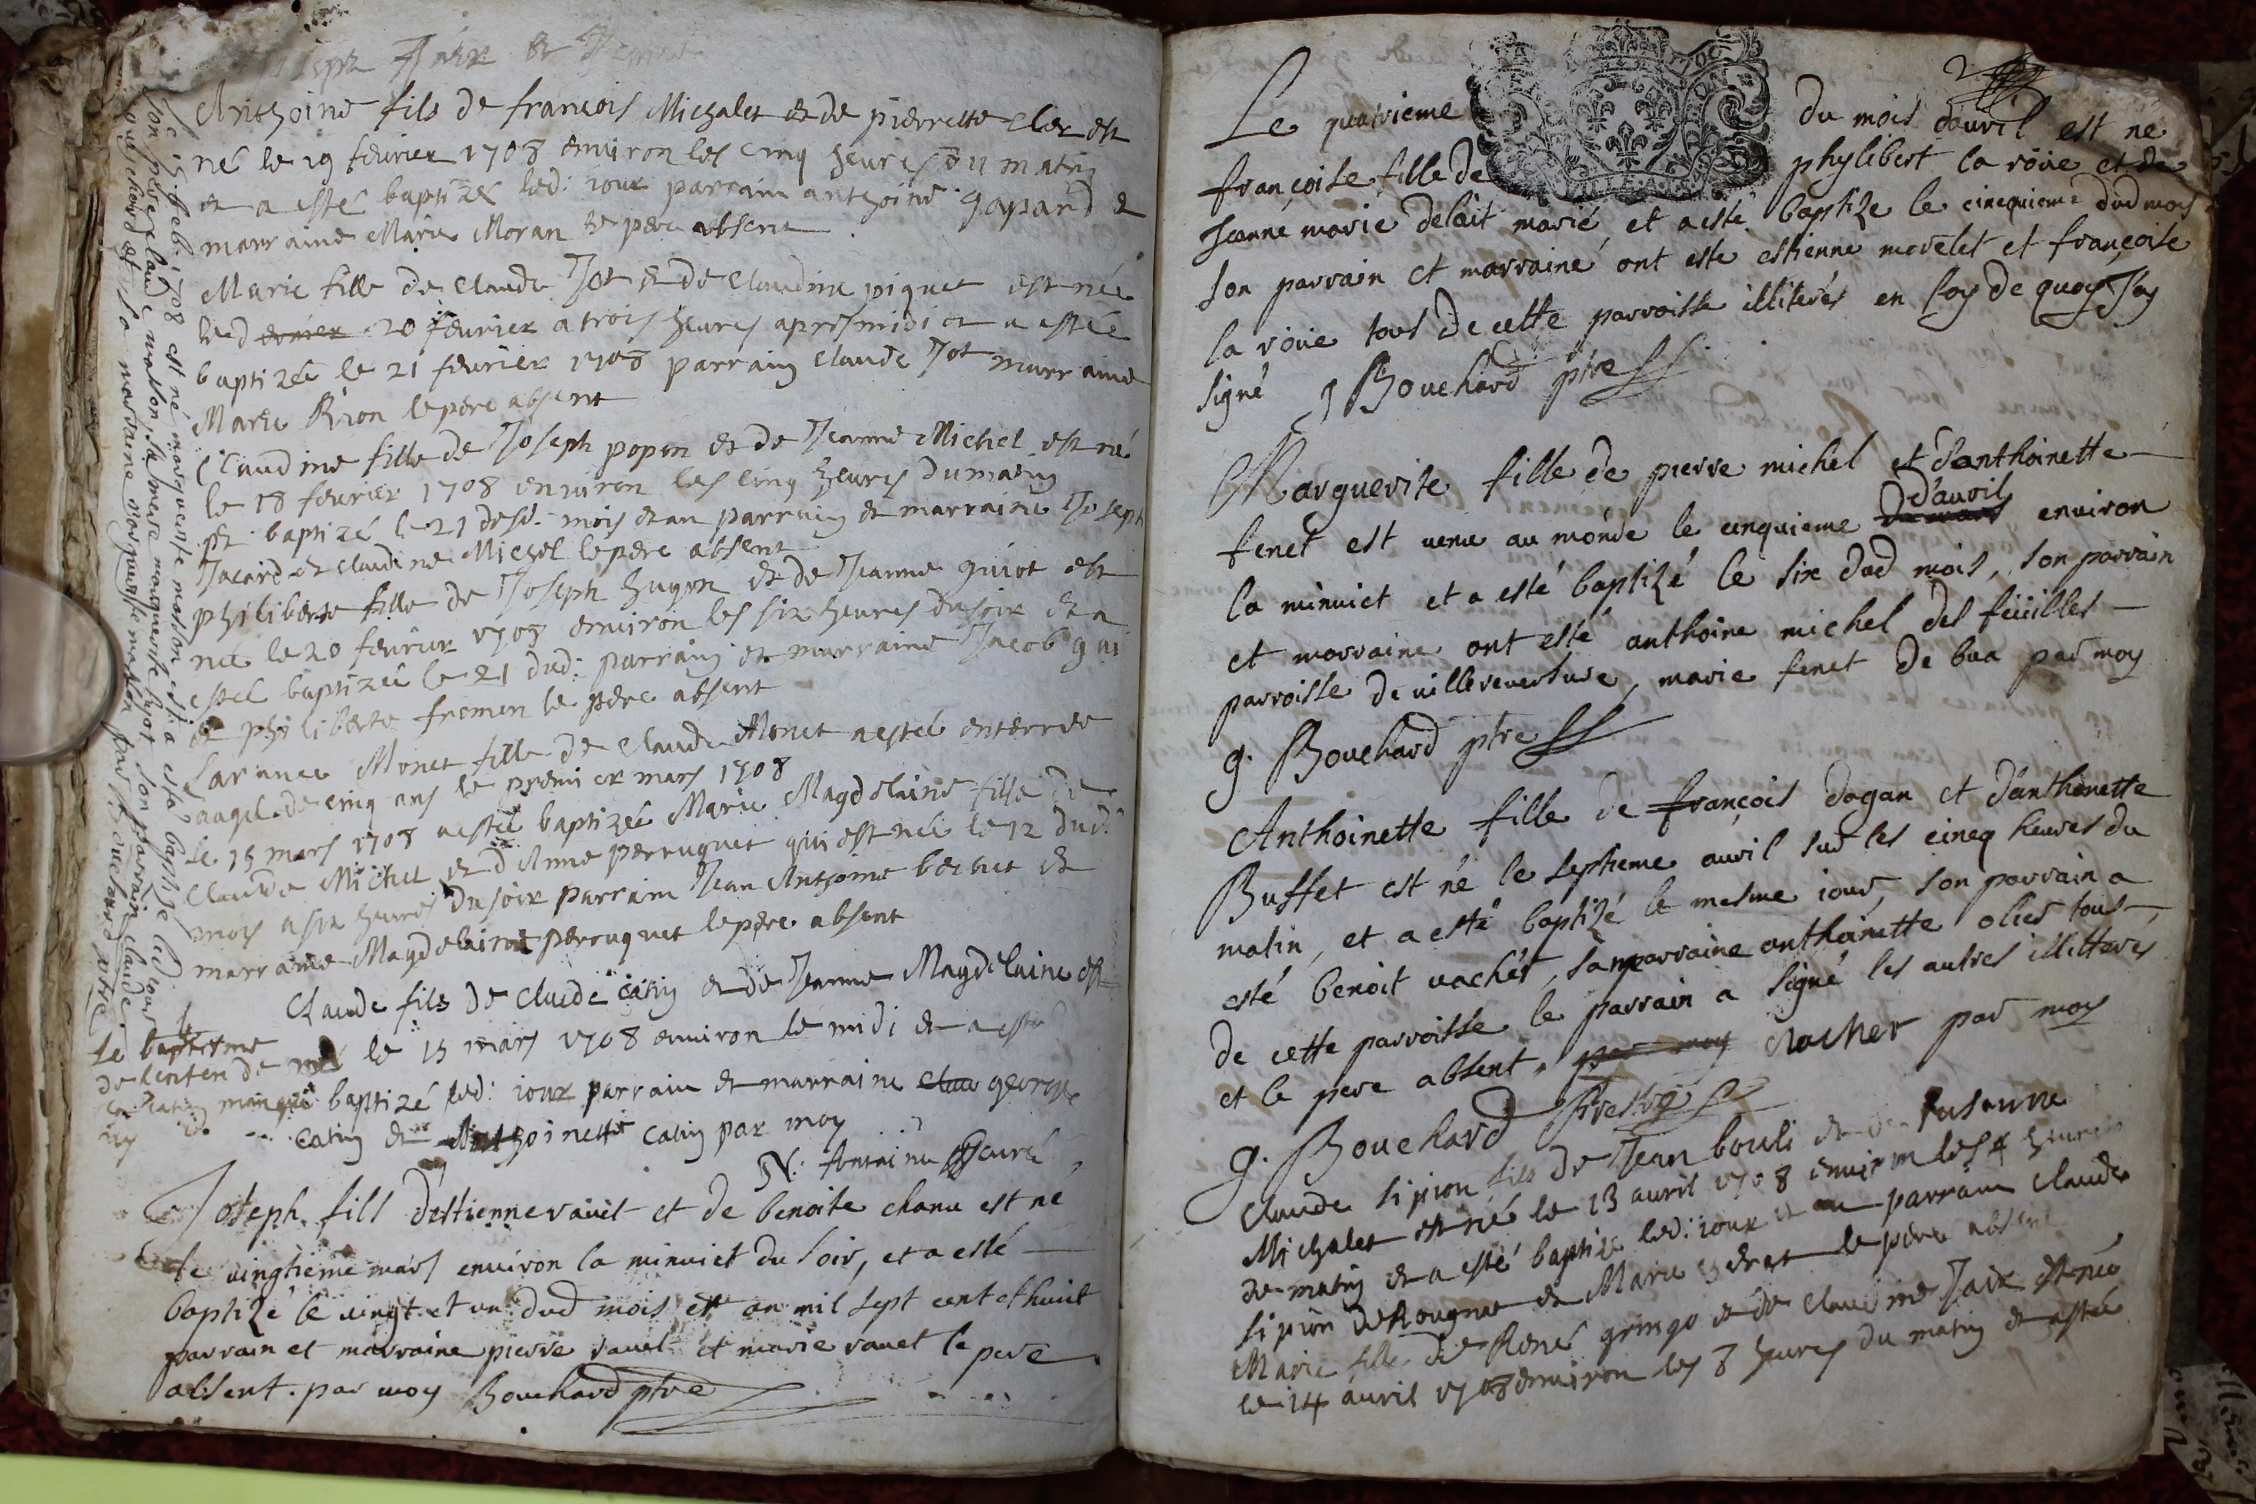 Anthoine fils de françois Michalet et de pierrette Clex est
né le 19 feurier 1708 enuiron les cinq heures du matin
et a esté baptizéé led: iour parrain anthoine gapard et
marraine Marie Moran le pere absent
Marie fille de Claude Jot et de Claudine piquet est née
led 20 feurier a trois heures apres midi et a estéé
baptizéé le 21 feurier 1708 parrain Claude Jot marraine
Marie Rion le pere absent
Claudine fille de Joseph popon et de Jeanne Michel est né
le 18 feurier 1708 enuiron les cinq heures du matin
et baptizé le 21 desd: mois et an parrain et marraine Joseph
Jacard et Claudine Michel le pere absent
philiberte fille de Joseph hugon et de Jeanne guiot est
née le 20 feurier 1708 enuiron les six heures du soir et a
estéé baptizéé le 21 dud: parrain et marraine Jacob gui
et philiberte fromen le pere absent
Monet fille de Claude Monet a estéé enterréé
aagéé de cinq ans le premier mars 1708
le 15 mars 1708 a estéé baptizéé Marie Magdelaine fille de
Claude Michel et d'Anne perruquet qui est néé le 12 dud:
mois a six heures du soir parrain Jean Anthoine et
marraine Magdelaine perouquet le pere absent
Claude fils de Claude Catin et de Jeanne Magdelaine est
né le 15 mars 1708 enuiron le midi et a esté
baptizé led: iour parrain et marraine george
Catin et Anthoinette Catin par moy
N: fontaine curé
Joseph fils d'estienne rauet et de benoite chanu est né
le uingtieme mars enuiron la minuict du soir, et a esté
baptizé le uingt et un dud mois et an mil sept cent et huit
parrain et marraine pierre rauet et marie rauet le pere
absent. par moy Bouchard ptre
le 15 feb: 1708 est né marguerite maston et a esté baptisé led iour
son pere claude maston, sa mere marguerite son parrain claude
bouchard et sa marraine marguerite maston par Bouchard ptre
le baptesme
de lenfen de
Catin manque
2
Le quatrieme du mois d'auril est né
françoise fille de phylibert la röüe et de
Jeanne marie delait marié, et a esté baptize le cincquieme dud mois
son parrain et marrainé ont este estienne morelet et françoise
la röüe tous de cette parroisse illiterés en foy de quoy Jay
signé J Bouchard ptre
Marguerite fille de pierre michel et d'anthoinette
fenet est uenu au monde le cinquieme d'auril enuiron
la minuict et a esté baptizé le six dud mois, son parrain
et marraine ont esté anthoine michel des feüilles
parroisse de uillereuersure, marie fenet de bua par moy
g. Bouchard ptre
Anthoinette fille de françois dogan et d'anthoinette
Buffet est né le septieme auril sur les cincq heures du
matin, et a esté baptizé le mesme iour, son parrain a
esté benoit uacher, sa marraine anthoinette olier tous
de cette parroisse le parrain a signé les autres illitterés
et le pere absent, par moy uacher par moy
g. Bouchard prestre
Claude sipion fils de Jean bouli et de susanne
Michalet est né le 13 auril 1708 enuiron les 4 heures
de matin et a esté baptizé led: iour et an parrain Claude
sipion de Rougnat et Marie le pere absent
Marie fille de René gringo et de Claudine Jaix est néé
le 14 auril 1708 enuiron les 8 heures du matin et a estéé